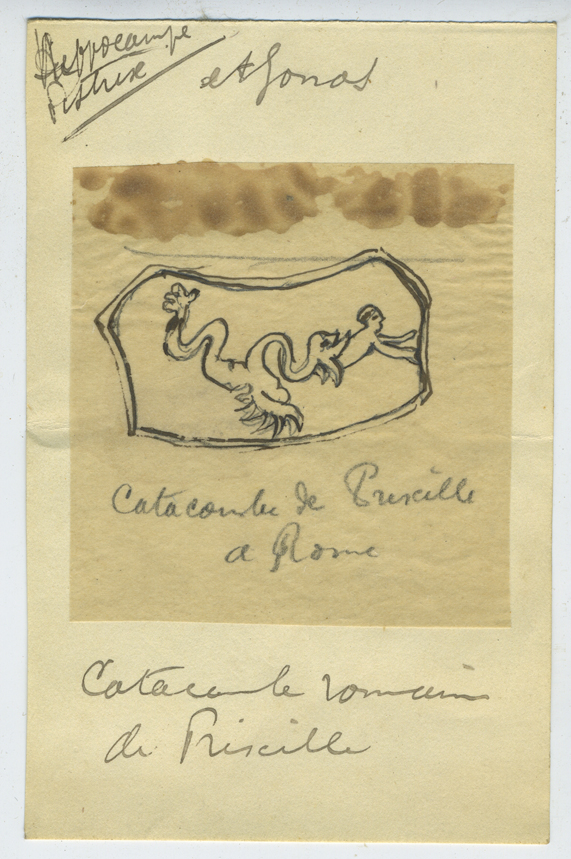 Hippocampe
Pistrix
et Jonas
Catacombe de Priscille
a Rome
Catacombe romaine
de Priscille